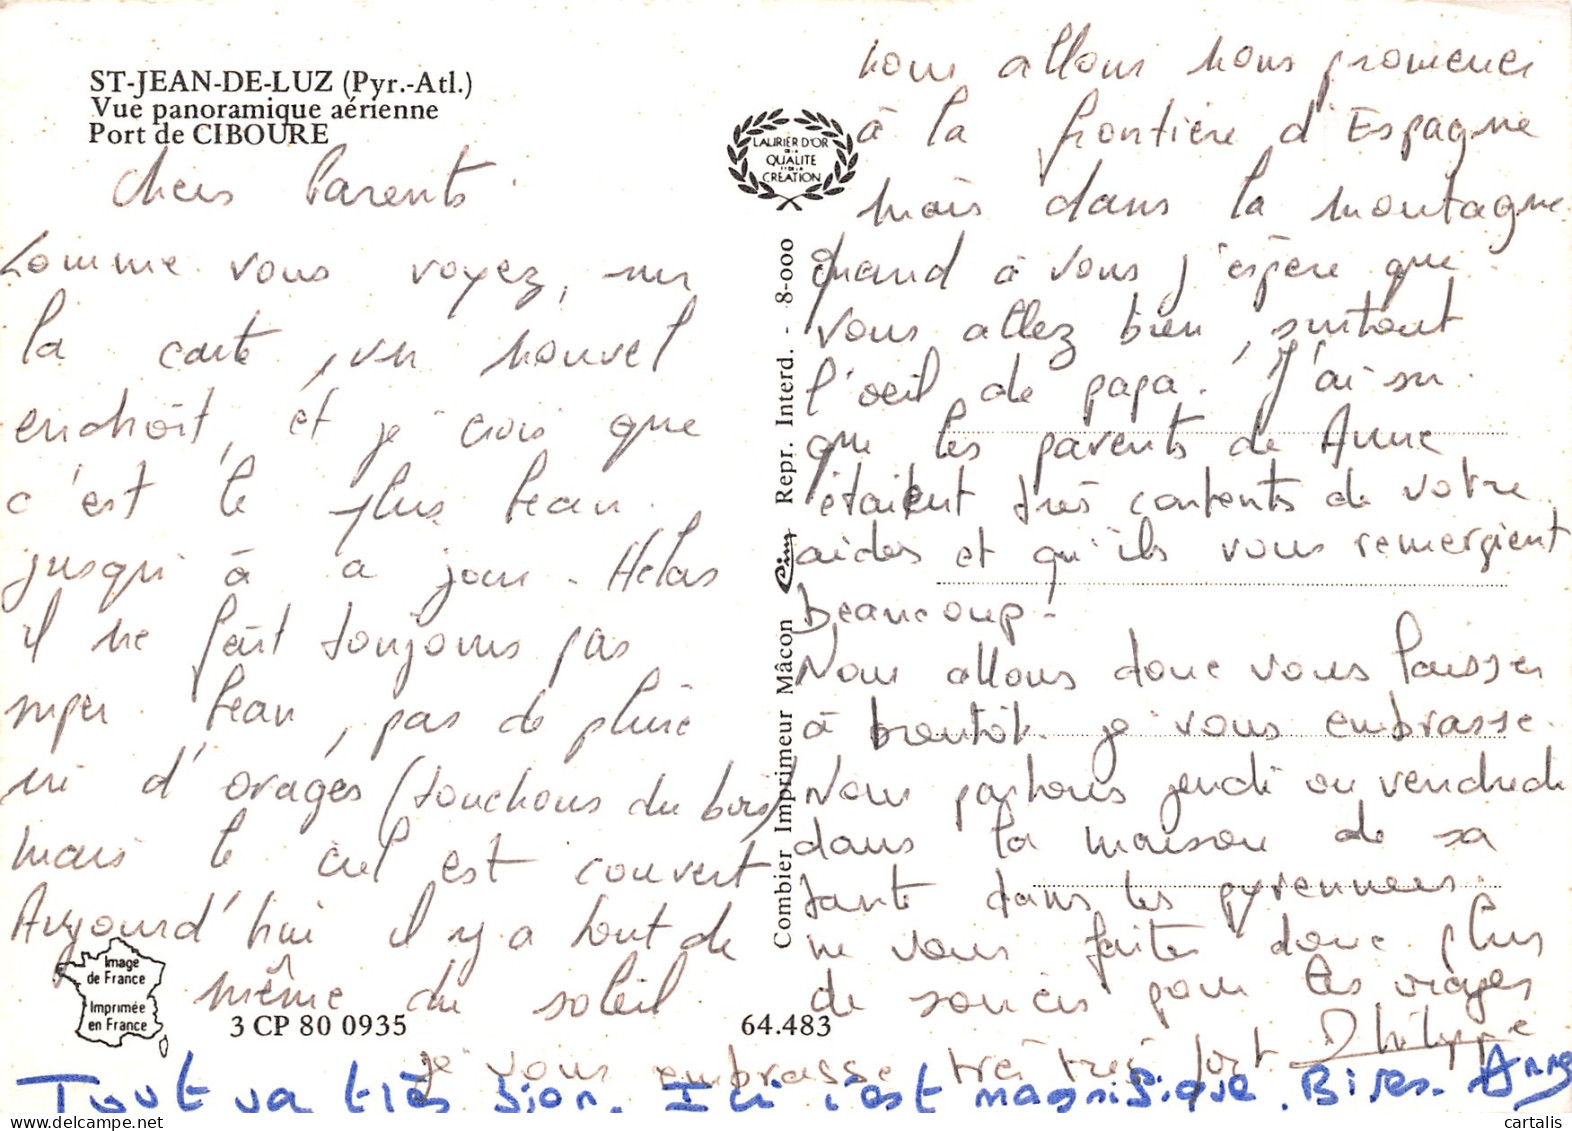 ST-JEAN-DE-LUZ (Pyr.-Atl.)
Vue panoramique aérienne
Port de CIBOURE
Chers Parents.
Comme vous voyez, sur
la carte, un nouvel
endroit, et je crois que
c'est le plus beau
jusqu'à a jour. Helas
il ne fait toujours pas
super beau, pas de pluie
ni d'orages (touchons du bois)
mais le ciel est couvert
Aujourd'hui il y a tout de
même du soleil
nous allons nous promener
à la frontière d'Espagne
mais dans la montagne
quand à vous j'espère que
vous allez bien, surtout
l'oeil de papa. J'ai su
que les parents de Anne
étaient très contents de votre
aides et qu'ils vous remergient
Beaucoup.
Nous allons donc vous laisser
à bientôt. je vous embrasse.
Nous partons jeudi ou vendredi
dans la maison de sa
tante dans les pyrennees.
ne vous faites donc plus
de soucis pour les orages
je vous embrasse très très fort Philippe
Tout va très bien. Ici c'est magnifique. Bises. Anne
LAURIER D'OR
DE LA
QUALITE
ET DE LA
CRÉATION
Combier Imprimeur Mâcon Cim Repr. Interd. - 8-000
Image
de France
Imprimée
en France
3 CP 80 0935
64.483
cartalis